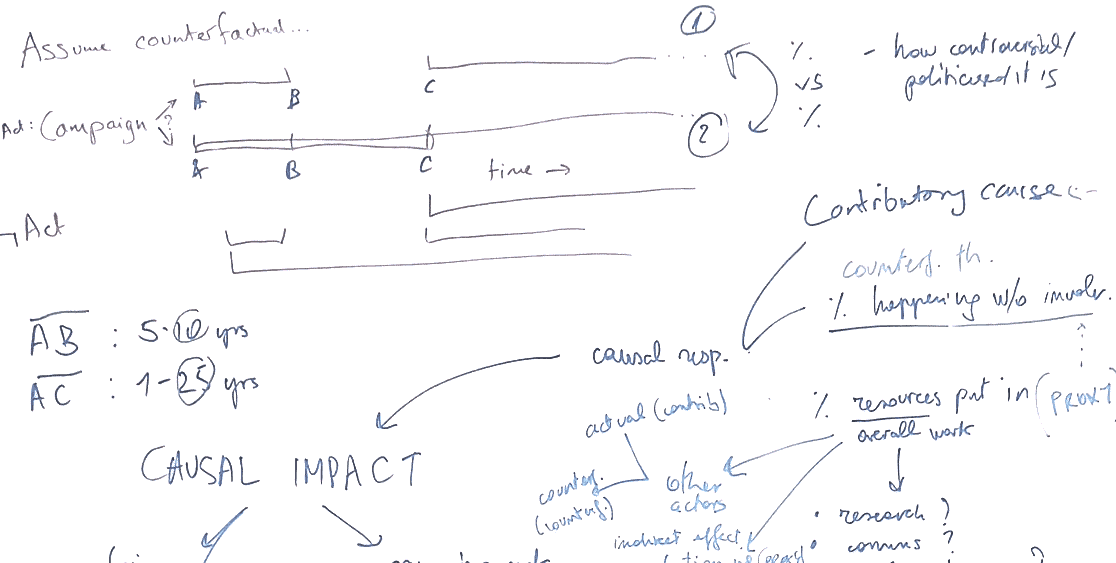 Assume counterfactual...
1
%
vs
%
- how controversial/
politicised it is
A B C
Act: Campaign ?
2
A B C
time →
¬Act
Contributory cause
counterf. th.
% happening w/o involv.
AB : 5-10 yrs
AC : 1-25 yrs
causal resp.
% resources put in (PROXY)
overall work
actual (contrib)
CAUSAL IMPACT
counterf.
(counterf.)
other
actors
indirect effect
• research ?
comms ?
?